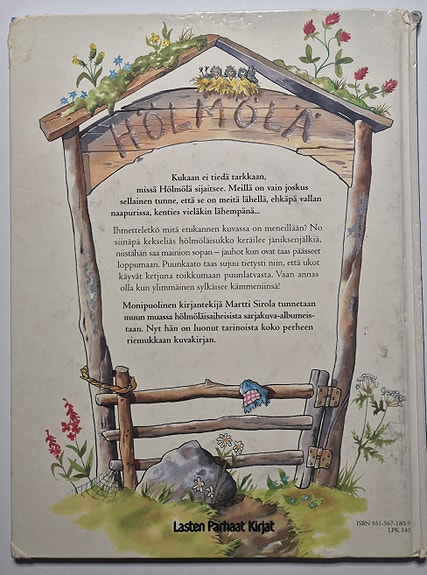 HÖLMÖLÄ
Kukaan ei tiedä tarkkaan,
missä Hölmölä sijaitsee. Meillä on vain joskus
sellainen tunne, että se on meitä lähellä, ehkäpä vallan
naapurissa, kenties vieläkin lähempänä...
Ihmetteletkö mitä etukannen kuvassa on meneillään? No
siinäpä kekseliäs hölmöläisukko keräilee jäniksenjälkiä,
niistähän saa mainion sopan – jauhot kun ovat taas päässeet
loppumaan. Puunkaato taas sujuu tietysti niin, että ukot
käyvät ketjuna roikkumaan puunlatvasta. Vaan annas
olla kun ylimmäinen sylkäisee kämmeniinsä!
Monipuolinen kirjantekijä Martti Sirola tunnetaan
muun muassa hölmöläisaiheisista sarjakuva-albumeis-
taan. Nyt hän on luonut tarinoista koko perheen
riemukkaan kuvakirjan.
Lasten Parhaat Kirjat
ISBN 951-567-180-9
LPK 143